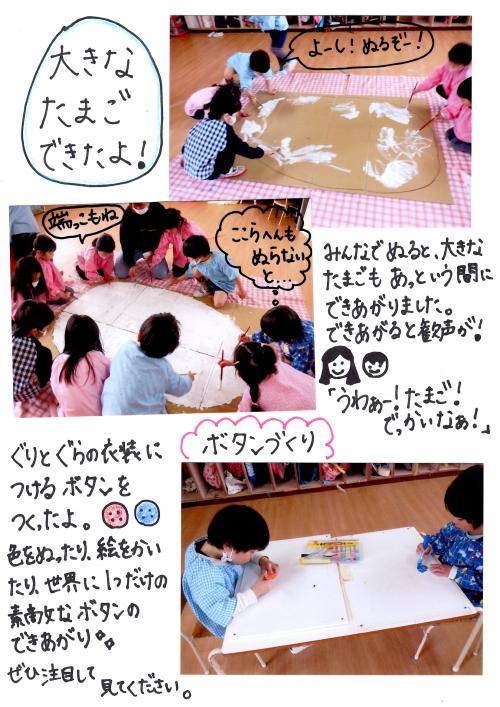 大きな
たまご
できたよ！
よーし！ぬるぞー！
端っこもね
ここらへんも
ぬらない
と…
みんなでぬると、大きな
たまごも あっという間に
できあがりました。
できあがると歓声が！
「うわぁー！たまご！
でっかいなぁ！」
ボタンづくり
ぐりとぐらの衣装に
つける ボタンを
つくったよ。
色をぬったり、絵をかい
たり、世界に1つだけの
素敵なボタンの
できあがり
ぜひ注目して
見てください。